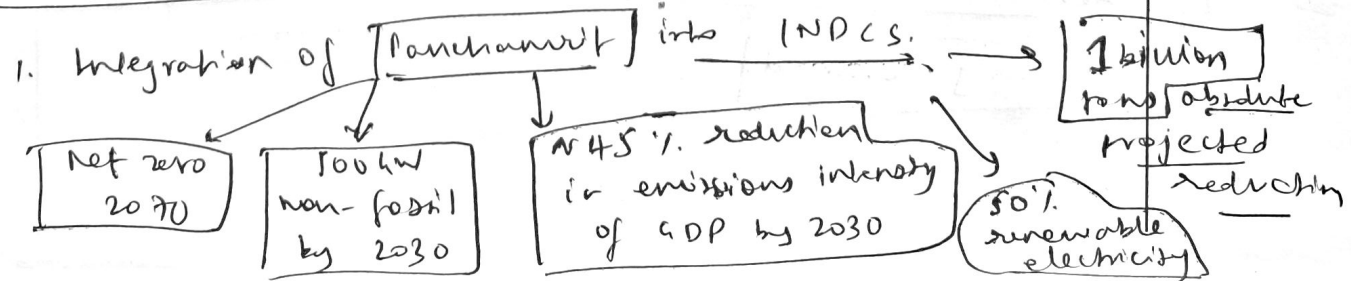 1. Integration of Panchamrit into INDCS.
1 billion
tons absolute
projected
reduction
Net zero
2070
500 GW
non-fossil
by 2030
~45% reduction
in emissions intensity
of GDP by 2030
50%
renewable
electricity